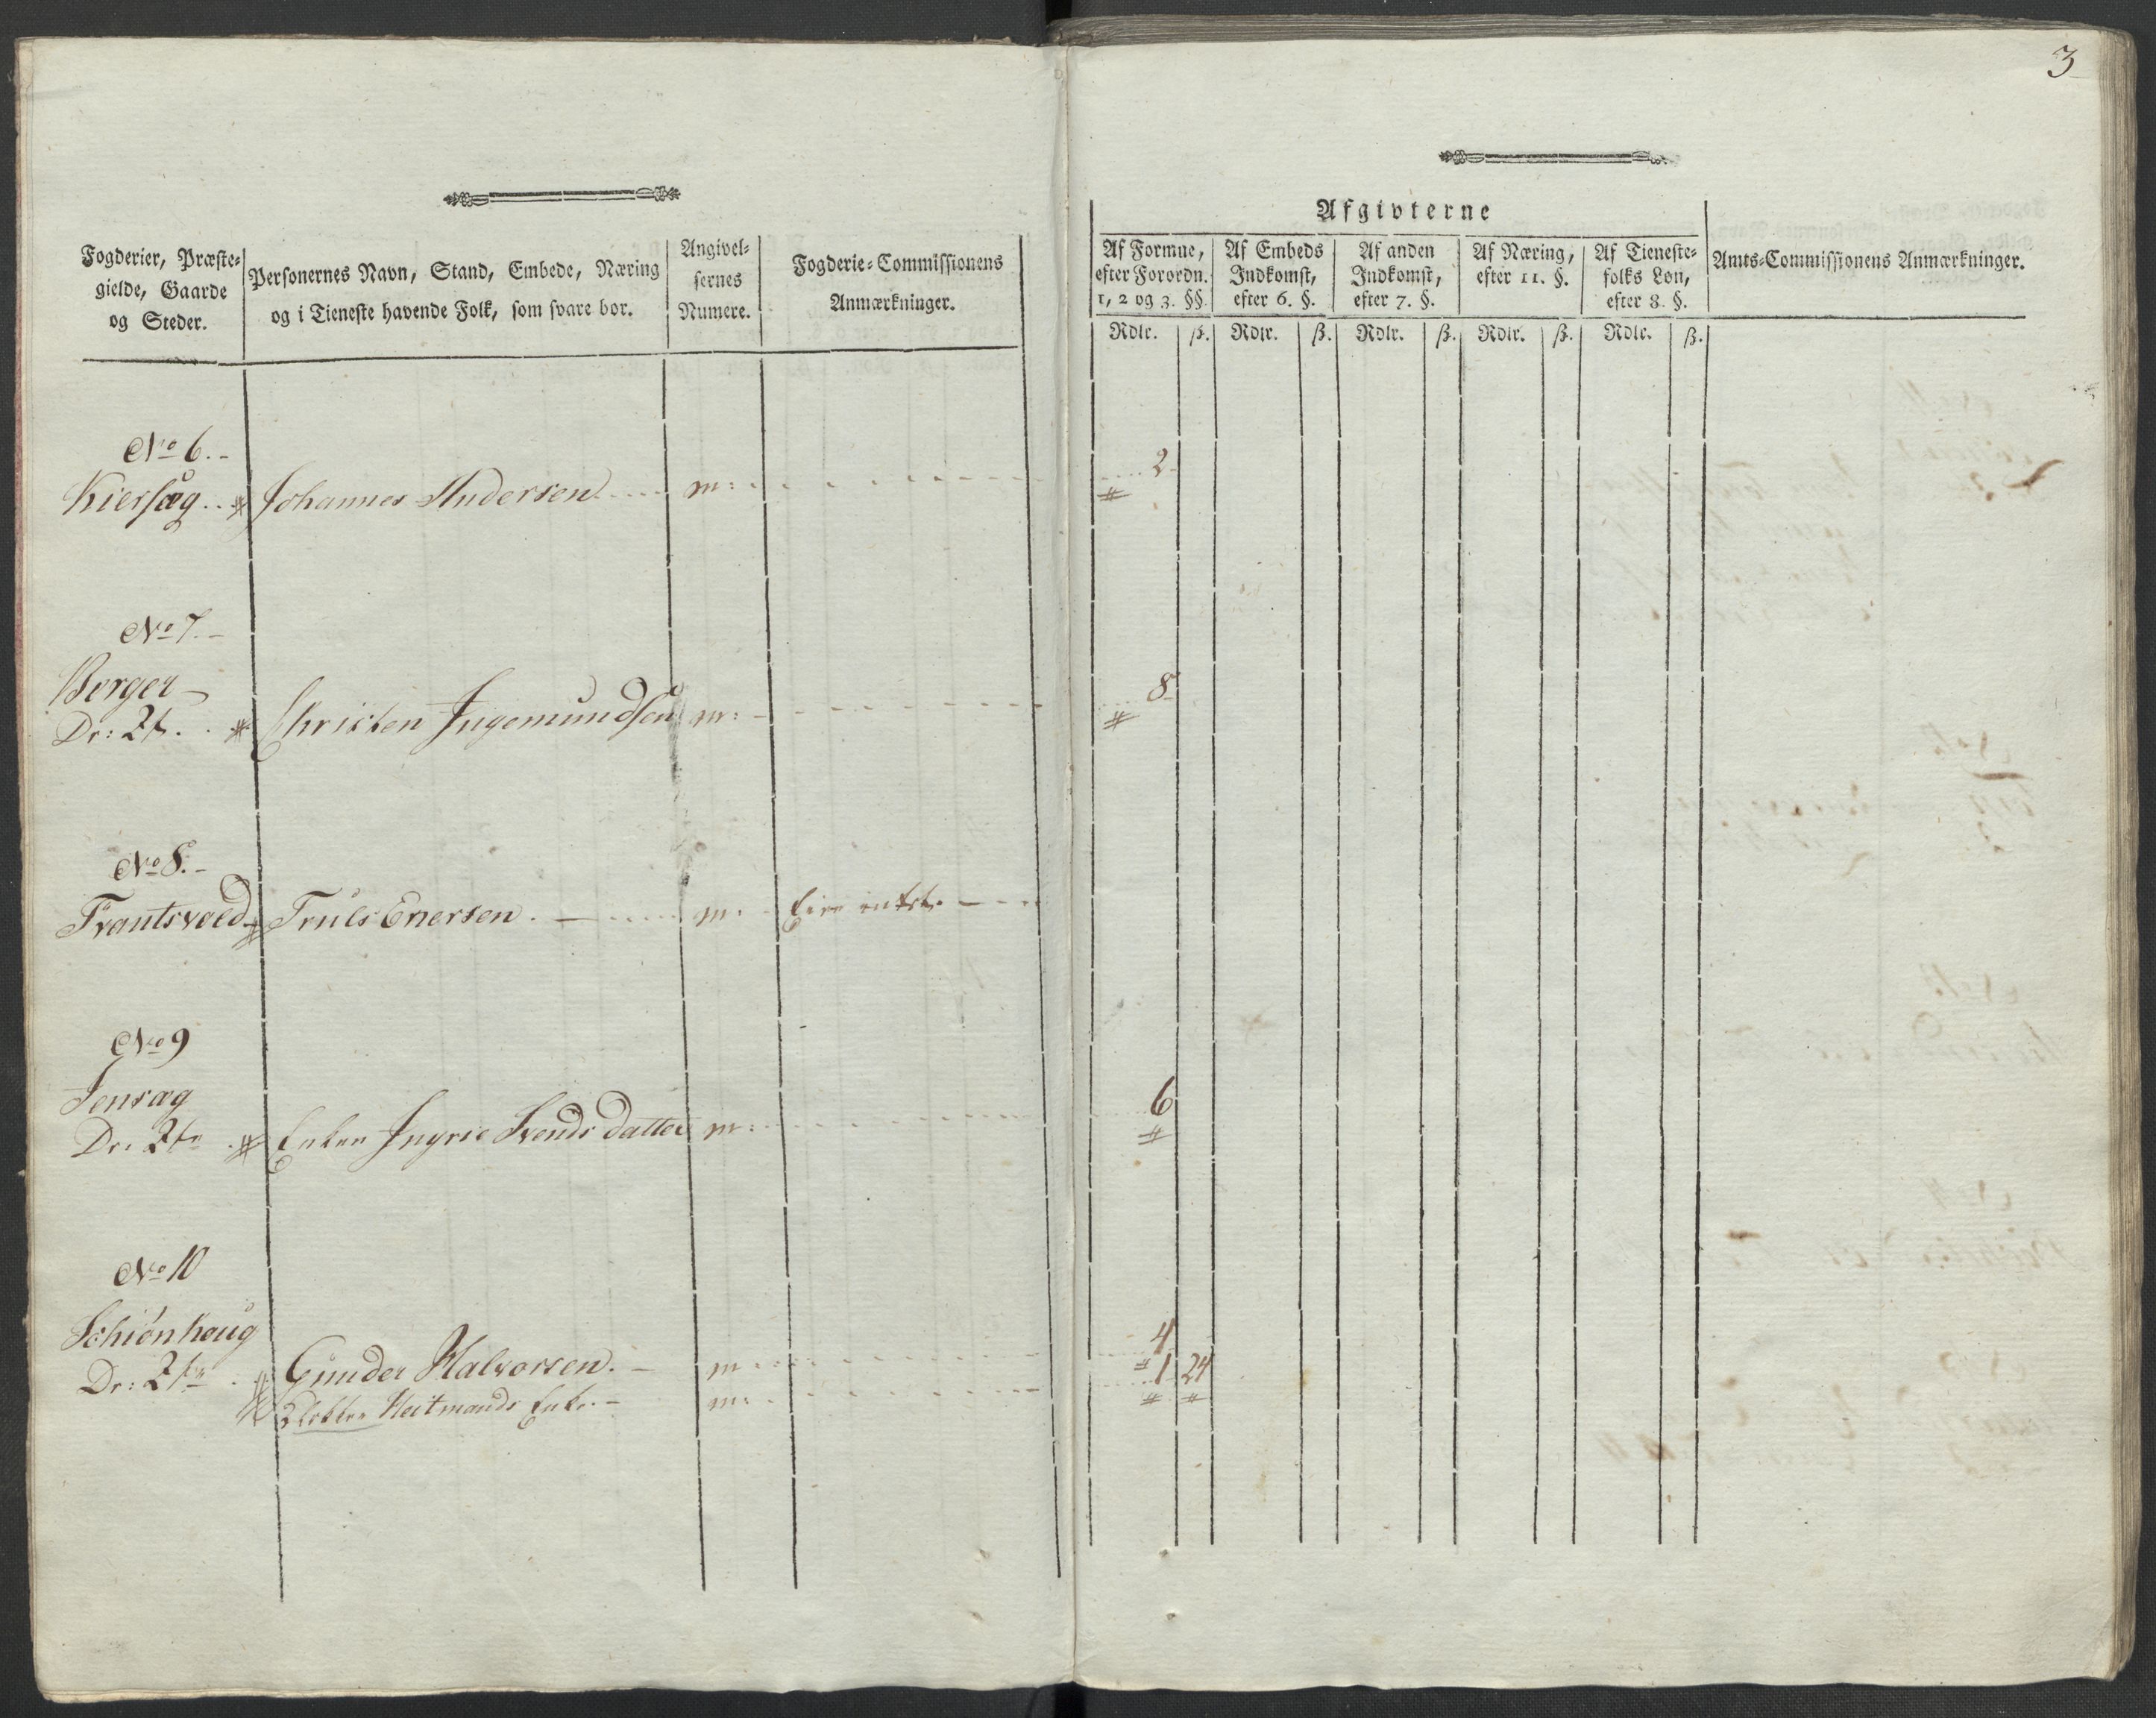 3
Fogderier, Præste-
gielde, Gaarde
og Steder.
Personernes Navn, Stand, Embede, Næring
og i Tieneste havende Folk, som svare bør.
Angivel-
sernes
Numere.
Fogderie-Commissionens
Anmærkninger.
Afgivterne
Af Formue,
efter Forordn.
1, 2 og 3. §§.
Af Embeds
Indkomst,
efter 6. §.
Af anden
Indkomst,
efter 7. §.
Af Næring,
efter 11. §.
Af Tieneste-
folks Løn,
efter 8. §.
Amts-Commissionens Anmærkninger.
Rdlr. ß. Rdlr. ß. Rdlr. ß. Rdlr. ß. Rdlr. ß.
No 6.
Kiersæg Johannes Andersen m: 2
No 7.
Berger
Dr: 2 Christen Ingemundsen m: 8
No 8.
Trantsvold Truls Enersen m. Eier
No 9
Jensæg
Dr: 2 Enken Ingrie Svends datter m: 6
No 10
Schiönhoug 4
Dr: 2 Gunder Halvorsen. m 1 24
Heitmands Enke m: